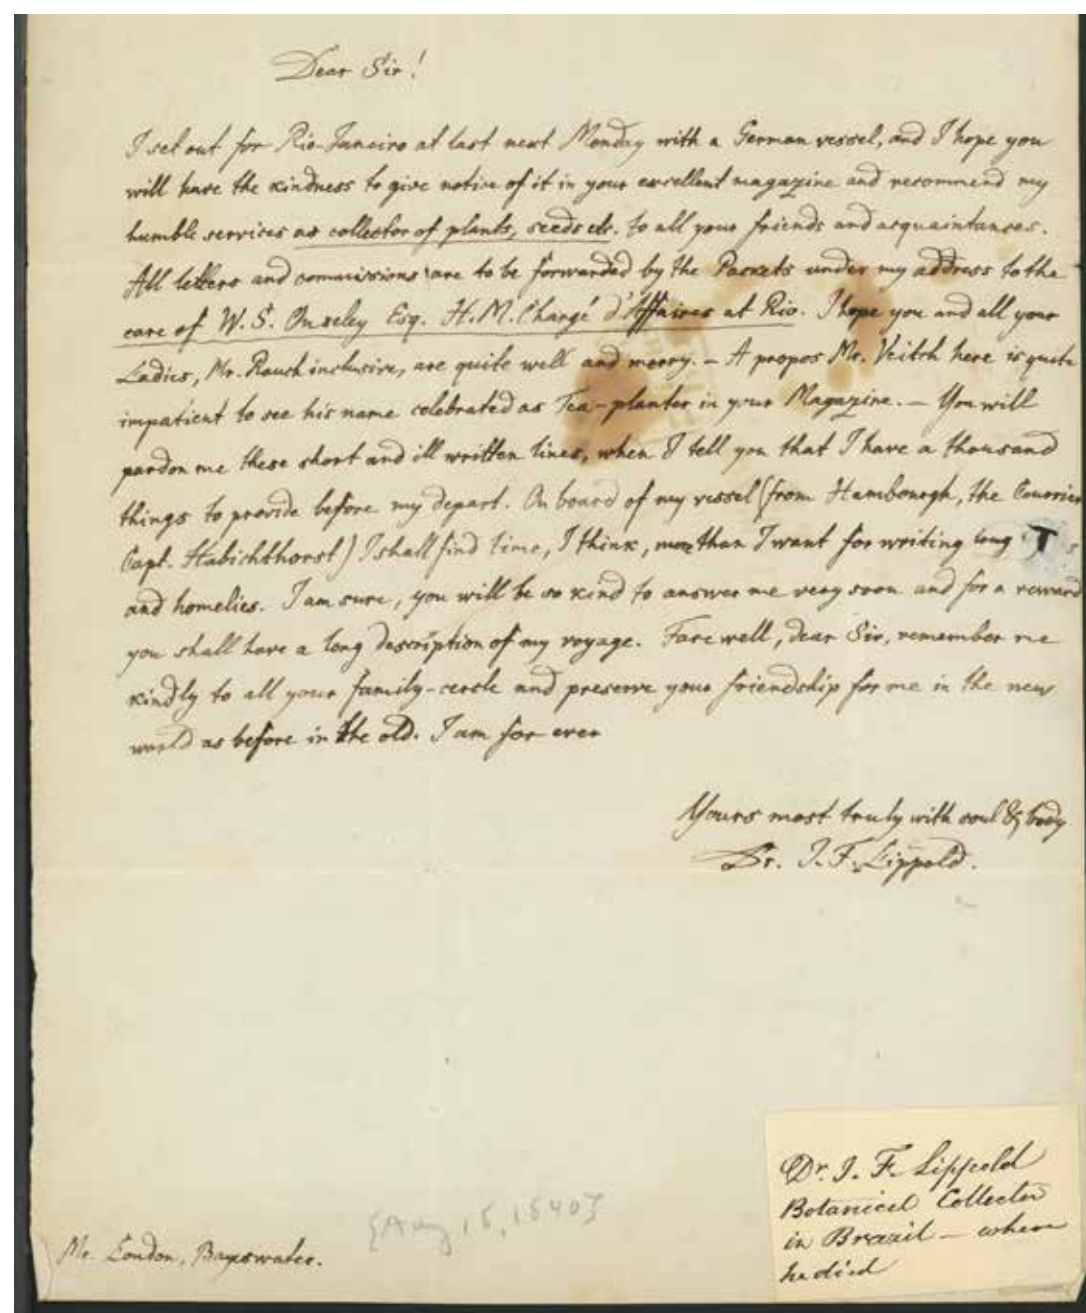 Dear Sir!
I set out for Rio-Janeiro at last next Monday with a German vessel, and I hope you
will have the kindness to give notice of it in your excellent magazine and recommend my
humble services as collector of plants, seeds etc. to all your friends and acquaintances.
All letters and commissions are to be forwarded by the Packets under my address to the
care of W. S. Ouseley Esq. H. M. Chargé d'Affaires at Rio. I hope you and all your
Ladies, Mr. Rauch inclusive, are quite well and merry. – A propos Mr. Veitch here is quite
impatient to see his name celebrated as Tea-planter in your Magazine. – You will
pardon me these short and ill written lines, when I tell you that I have a thousand
things to provide before my depart. On board of my vessel (from Hambourgh, the Courrier
Capt. Habichthorst) I shall find time, I think, more than I want for writing long
and homelies. I am sure, you will be so kind to answer me very soon and for a reward
you shall have a long description of my voyage. Farewell, dear Sir, remember me
kindly to all your family-cercle and preserve your friendship for me in the new
world as before in the old. I am for ever
Yours most truly with soul & body
Dr. J. F. Lippold.
{Aug 16, 1840}
Mr. Loudon, Bayswater.
Dr. J. F. Lippold
Botanicel Collector
in Brazil – where
he died